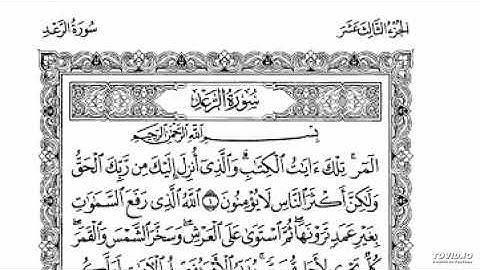 الجزء الثالث عشر
سورة الرعد
سورة الرعد
بسم الله الرحمن الرحيم
الٓمٓرۚ تِلۡكَ ءَايَٰتُ ٱلۡكِتَٰبِۗ وَٱلَّذِيٓ أُنزِلَ إِلَيۡكَ مِن رَّبِّكَ ٱلۡحَقُّ
وَلَٰكِنَّ أَكۡثَرَ ٱلنَّاسِ لَا يُؤۡمِنُونَ ١ ٱللَّهُ ٱلَّذِي رَفَعَ ٱلسَّمَٰوَٰتِ
بِغَيۡرِ عَمَدٖ تَرَوۡنَهَاۖ ثُمَّ ٱسۡتَوَىٰ عَلَى ٱلۡعَرۡشِۖ وَسَخَّرَ ٱلشَّمۡسَ وَٱلۡقَمَرَۖ
TOVID.IO